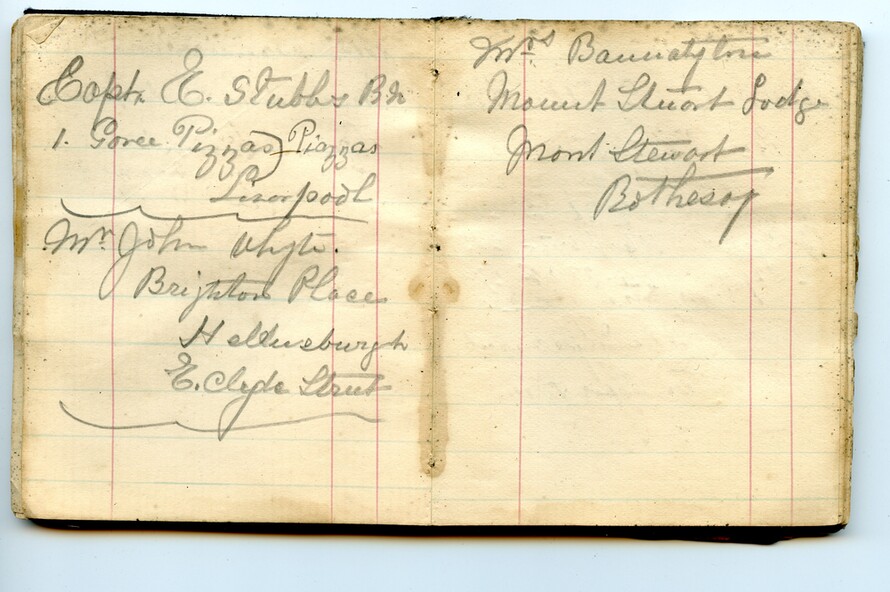 Capt. E. Stubbs
1. Goree Pizzas) Piazzas
Liverpool
Mr. John Whyte.
Brighton Place
Helluseburgh
E. Clyde Street
Mrs Bannatyton
Mount Stuart Lodge
Mont Stewart
Rothesay